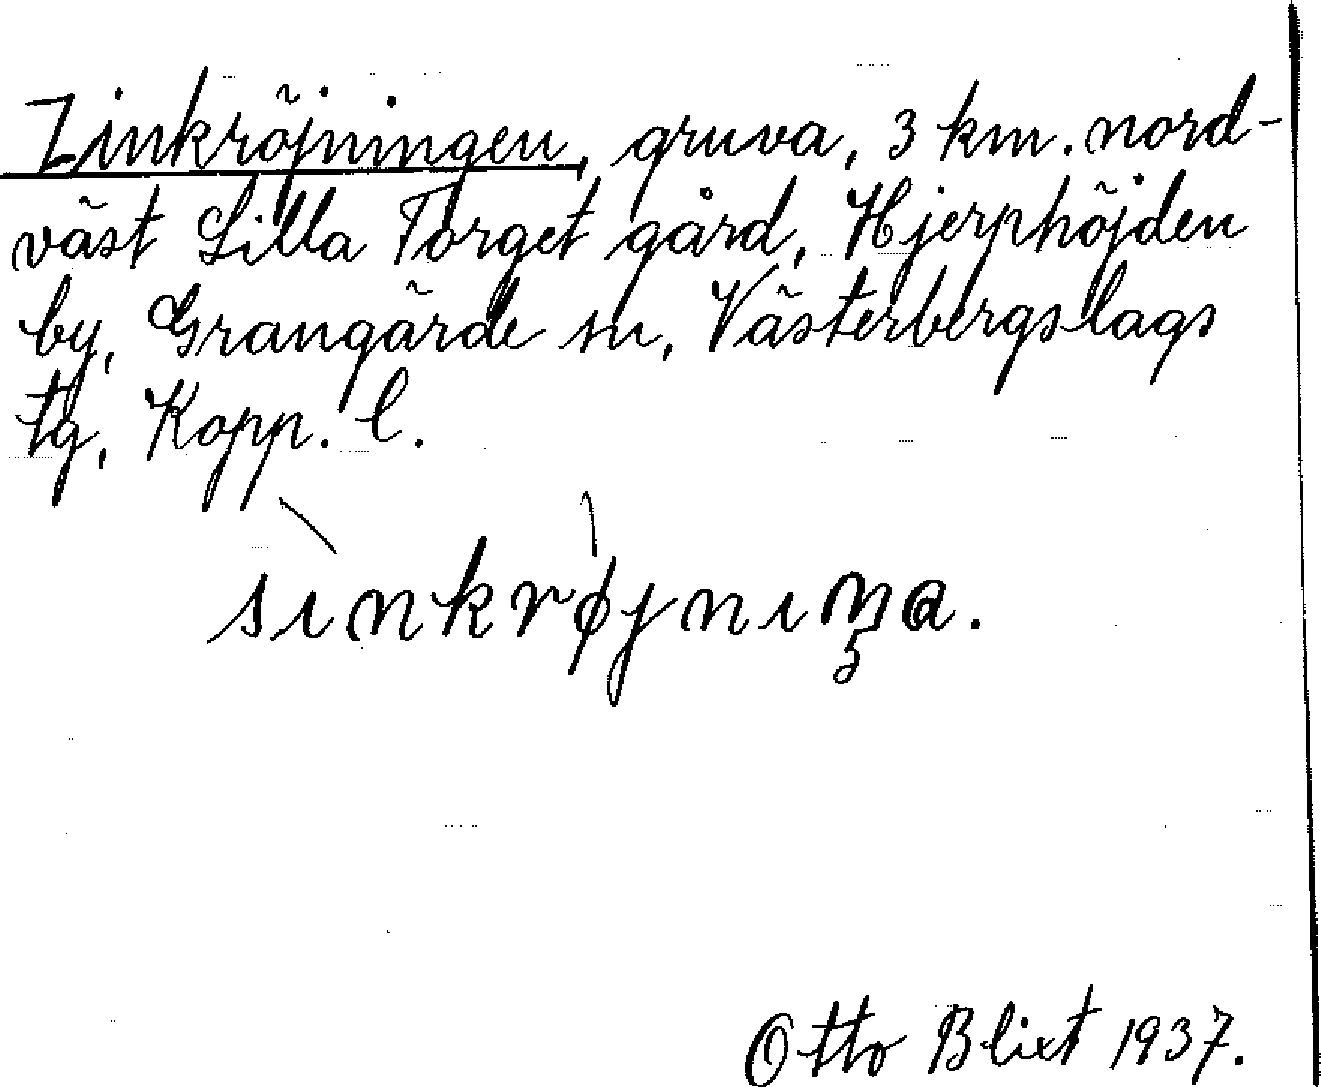 Zinkröjningen, gruva, 3 km. nord-
väst Lilla Torget gård, Hjerphöjden
by, Grangärde sn, Västerbergslags
tg, Kopp. l.
sınkrøjnıŋa.
Otto Blixt 1937.